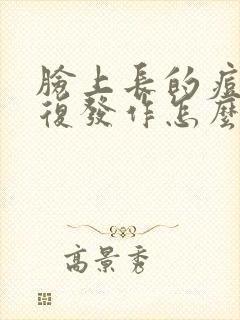 臉上長的痘
復發作怎麼
高景秀